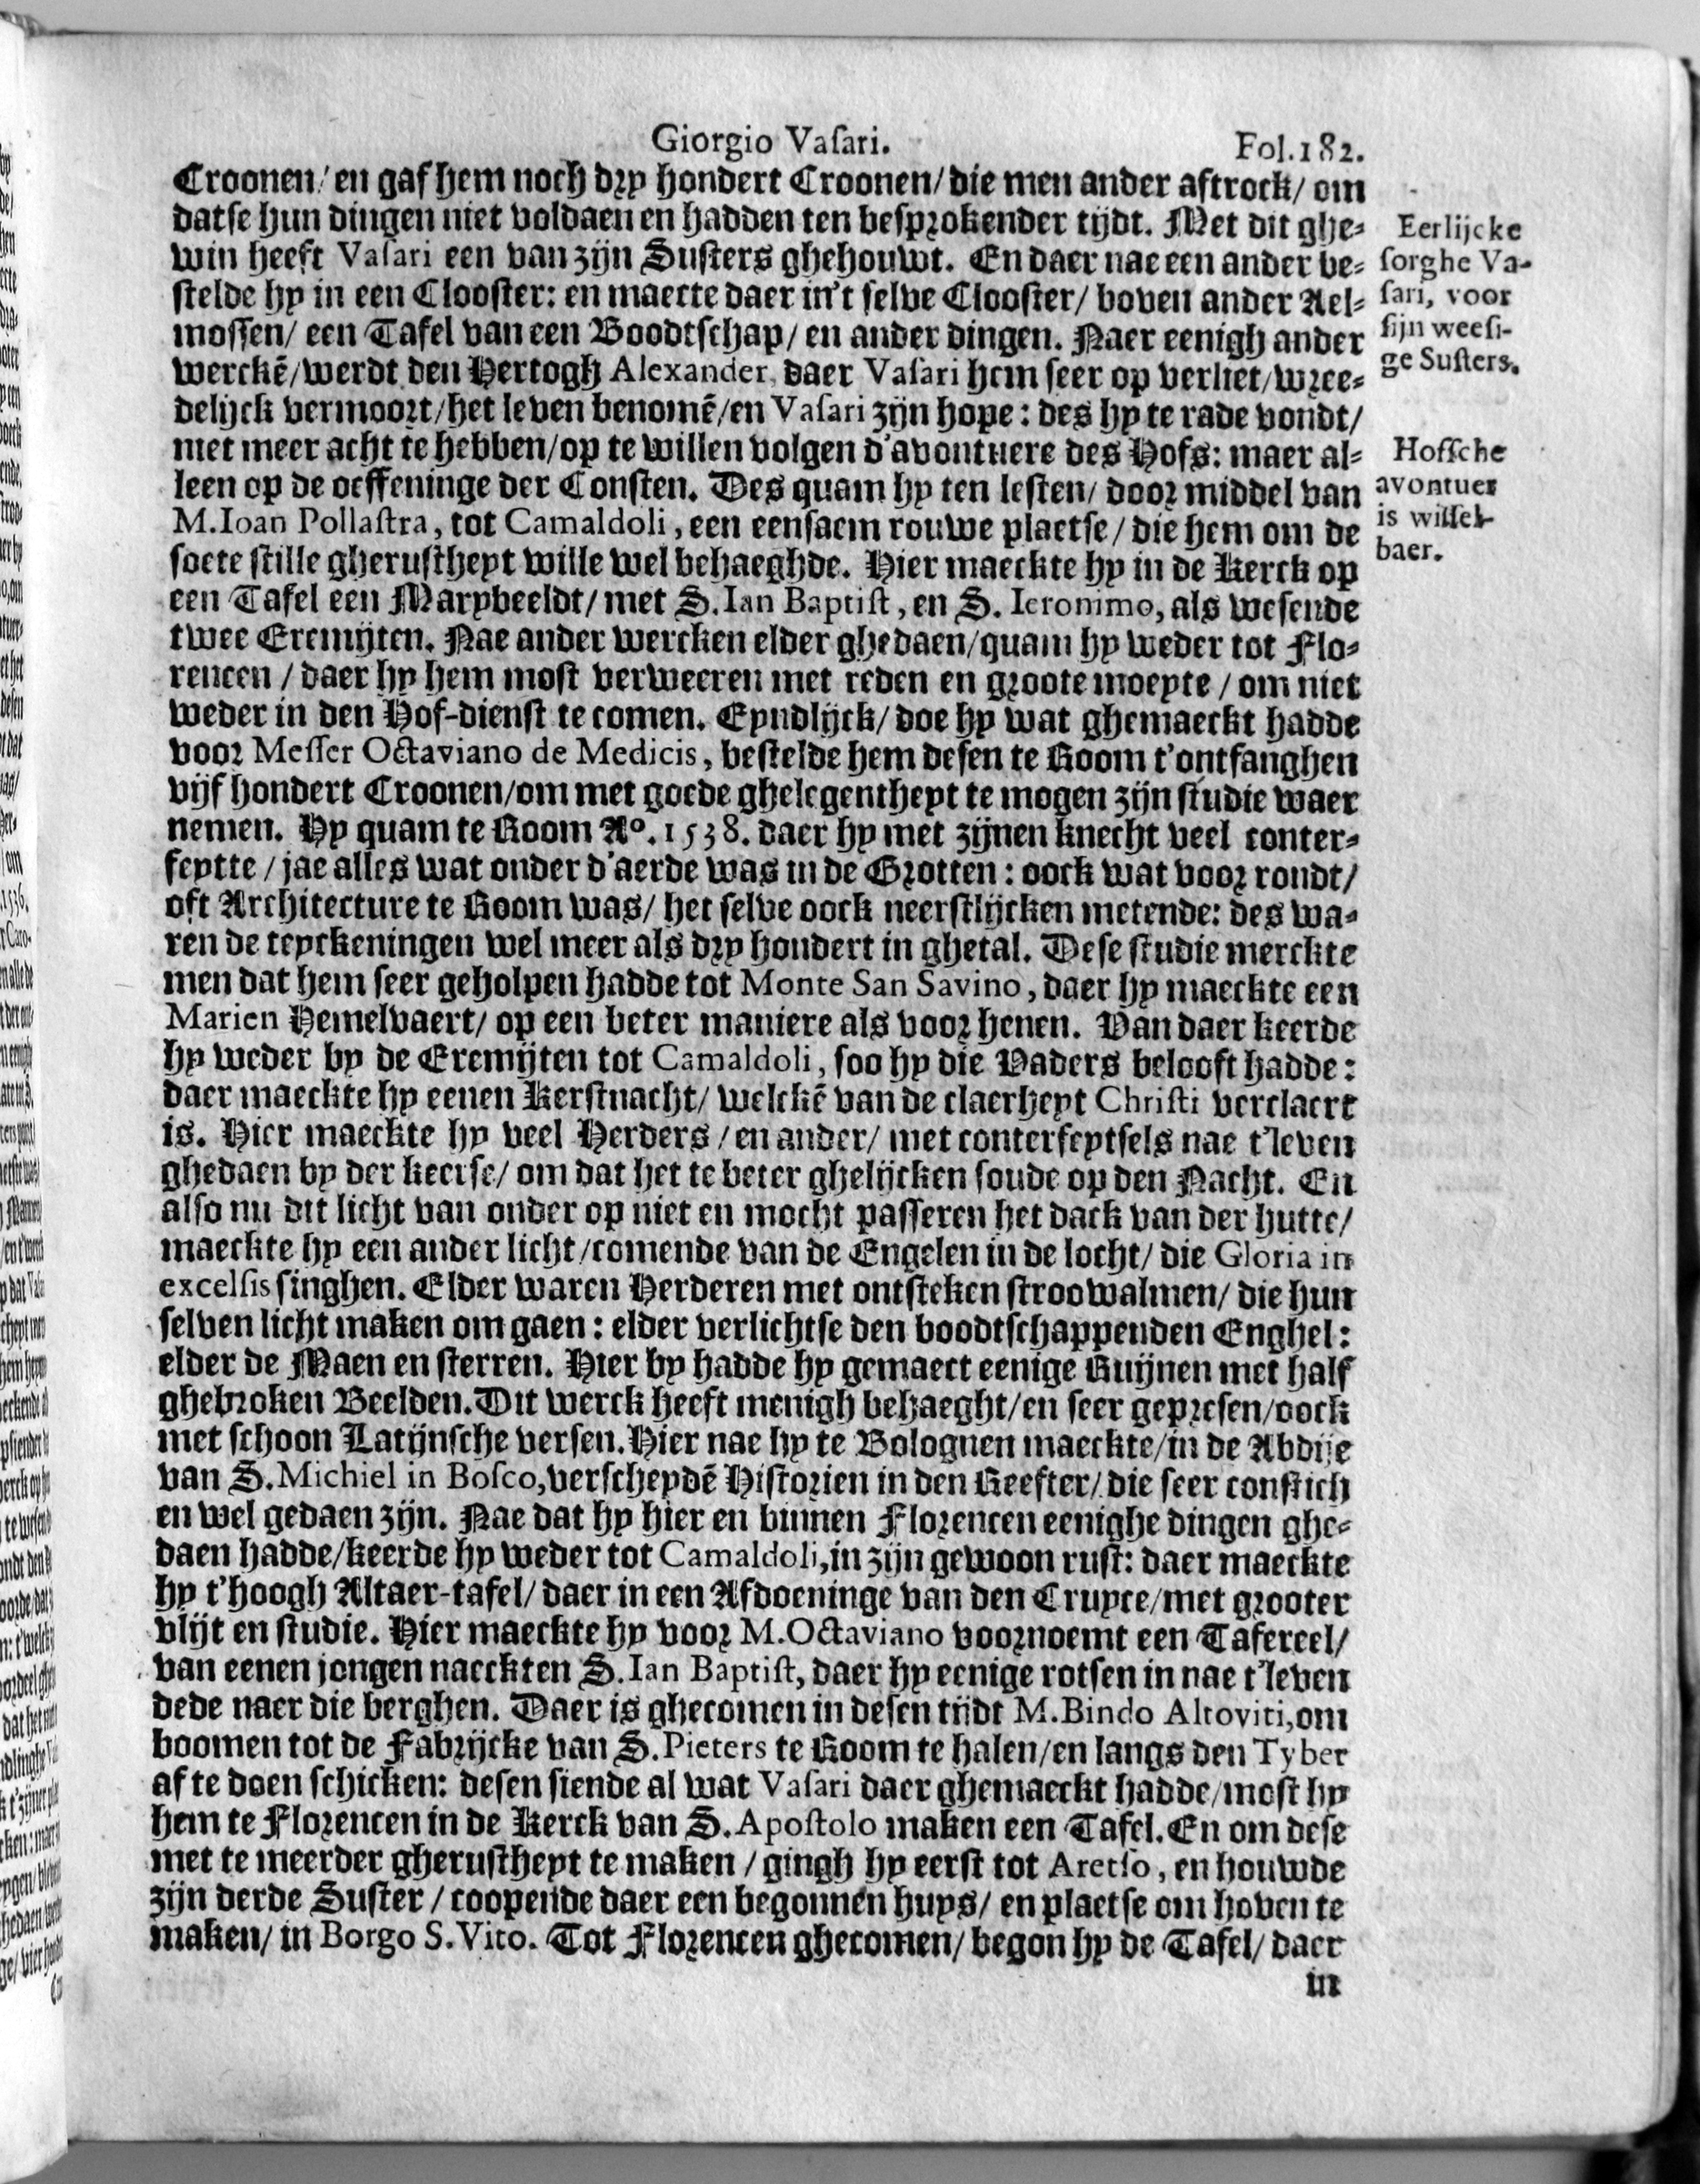 Giorgio Vaſari.
Fol.182.
Croonen/ en gaf hem noch dꝛy hondert Croonen/ die men ander aftrock/ om
datſe hun dingen niet voldaen en hadden ten beſpꝛokender tijdt. Met dit ghe-
win heeft Vaſari een van zijn Suſters ghehouwt. En daer nae een ander be-
ſtelde hy in een Clooſter: en maecte daer in't ſelve Clooſter/ boven ander Ael-
moſſen/ een Tafel van een Boodtſchap/ en ander dingen. Naer eenigh ander
werckẽ/ werdt den Hertogh Alexander, daer Vaſari hem ſeer op verliet/ wꝛee-
delijck vermooꝛt/ het leven benomẽ/ en Vaſari zijn hope: des hy te rade vondt/
niet meer acht te hebben/ op te willen volgen d'avontuere des Hofs: maer al-
leen op de oeffeninge der Conſten. Des quam hy ten leſten/ dooꝛ middel van
M.Ioan Pollaſtra, tot Camaldoli, een eenſaem rouwe plaetſe/ die hem om de
ſoete ſtille gheruſtheyt wille wel behaeghde. Hier maeckte hy in de Kerck op
een Tafel een Marybeeldt/ met S.Ian Baptiſt, en S. Ieronimo, als weſende
twee Eremijten. Nae ander wercken elder ghedaen/ quam hy weder tot Flo-
rencen/ daer hy hem moſt verweeren met reden en gꝛoote moeyte/ om niet
weder in den Hof-dienſt te comen. Eyndlijck/ doe hy wat ghemaeckt hadde
vooꝛ Meſſer Octaviano de Medicis, beſtelde hem deſen te Room t'ontfanghen
vijf hondert Croonen/ om met goede ghelegentheyt te mogen zijn ſtudie waer
nemen. Hy quam te Room Aº. 1538. daer hy met zijnen knecht veel conter-
feytte/ jae alles wat onder d'aerde was in de Gꝛotten: oock wat vooꝛ rondt/
oft Architecture te Room was/ het ſelve oock neerſtlijcken metende: des wa-
ren de teyckeningen wel meer als dꝛy hondert in ghetal. Deſe ſtudie merckte
men dat hem ſeer geholpen hadde tot Monte San Savino, daer hy maeckte een
Marien Hemelvaert/ op een beter maniere als vooꝛ henen. Van daer keerde
hy weder by de Eremijten tot Camaldoli, ſoo hy die Vaders belooft hadde:
daer maeckte hy eenen Kerſtnacht/ welckẽ van de claerheyt Chriſti verclaert
is. Hier maeckte hy veel Herders/ en ander/ met conterfeytſels nae t'leven
ghedaen by der keerſe/ om dat het te beter ghelijcken ſoude op den Nacht. En
alſo nu dit licht van onder op niet en mocht paſſeren het dack van der hutte/
maeckte hy een ander licht/ comende van de Engelen in de locht/ die Gloria in
excelſis ſinghen. Elder waren Herderen met ontſteken ſtroowalmen/ die hun
ſelven licht maken om gaen: elder verlichtſe den boodtſchappenden Enghel:
elder de Maen en ſterren. Hier by hadde hy gemaect eenige Ruijnen met half
ghebꝛoken Beelden. Dit werck heeft menigh behaeght/ en ſeer gepꝛeſen/ oock
met ſchoon Latijnſche verſen. Hier nae hy te Bolognen maeckte/ in de Abdije
van S.Michiel in Boſco, verſcheydẽ Hiſtoꝛien in den Reefter/ die ſeer conſtich
en wel gedaen zijn. Nae dat hy hier en binnen Floꝛencen eenighe dingen ghe-
daen hadde/ keerde hy weder tot Camaldoli, in zijn gewoon ruſt: daer maeckte
hy t'hoogh Altaer-tafel/ daer in een Afdoeninge van den Cruyce/ met gꝛooter
vlijt en ſtudie. Hier maeckte hy vooꝛ M.Octaviano vooꝛnoemt een Tafereel/
van eenen jongen naeckten S.Ian Baptiſt, daer hy eenige rotſen in nae t'leven
dede naer die berghen. Daer is ghecomen in deſen tijdt M.Bindo Altoviti, om
boomen tot de Fabꝛijcke van S.Pieters te Room te halen/ en langs den Tyber
af te doen ſchicken: deſen ſiende al wat Vaſari daer ghemaeckt hadde/ moſt hy
hem te Floꝛencen in de Kerck van S.Apoſtolo maken een Tafel. En om deſe
met te meerder gheruſtheyt te maken/ gingh hy eerſt tot Aretſo, en houwde
zijn derde Suſter/ coopende daer een begonnen huys/ en plaetſe om hoven te
maken/ in Borgo S.Vito. Tot Floꝛencen ghecomen/ begon hy de Tafel/ daer
in
Eerlijcke
ſorghe Va-
ſari, voor
ſijn weeſi-
ge Suſters.
Hofſche
avontuer
is wiſſel-
baer.